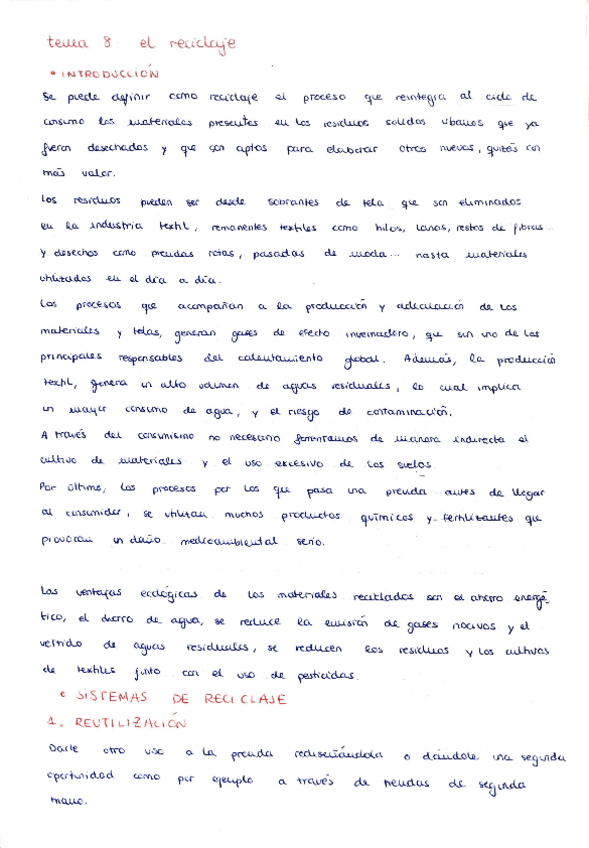 tema 8 el reciclaje
• INTRODUCCIÓN
Se puede definir como reciclaje el proceso que reintegra al ciclo de
consumo los materiales presentes en los residuos solidos urbanos que ya
fueron desechados y que son aptos para elaborar otros nuevos, quizás con
más valor.
Los residuos pueden ser desde sobrantes de tela que son eliminados
en la industria textil, remanentes textiles como hilos, lanas, restos de fibras...
y desechos como prendas rotas, pasadas de moda... hasta materiales
utilizados en el día a día.
Los procesos que acompañan a la producción y adecuación de los
materiales y telas, generan gases de efecto invernadero, que son uno de los
principales responsables del calentamiento global. Además, la producción
textil, genera un alto volumen de aguas residuales, lo cual implica
un mayor consumo de agua, y el riesgo de contaminación.
A través del consumismo no necesario fomentamos de manera indirecta el
cultivo de materiales y el uso excesivo de los suelos.
Por último, los procesos por los que pasa una prenda antes de llegar
al consumidor, se utilizan muchos productos químicos y fertilizantes que
provocan un daño medioambiental serio.
Las ventajas ecológicas de los materiales reciclados son el ahorro energé-
tico, el ahorro de agua, se reduce la emisión de gases nocivos y el
vertido de aguas residuales, se reducen los residuos y los cultivos
de textiles junto con el uso de pesticidas.
• SISTEMAS DE RECICLAJE
1. REUTILIZACIÓN
Darle otro uso a la prenda rediseñándola o dándole una segunda
oportunidad como por ejemplo a través de tiendas de segunda
mano.